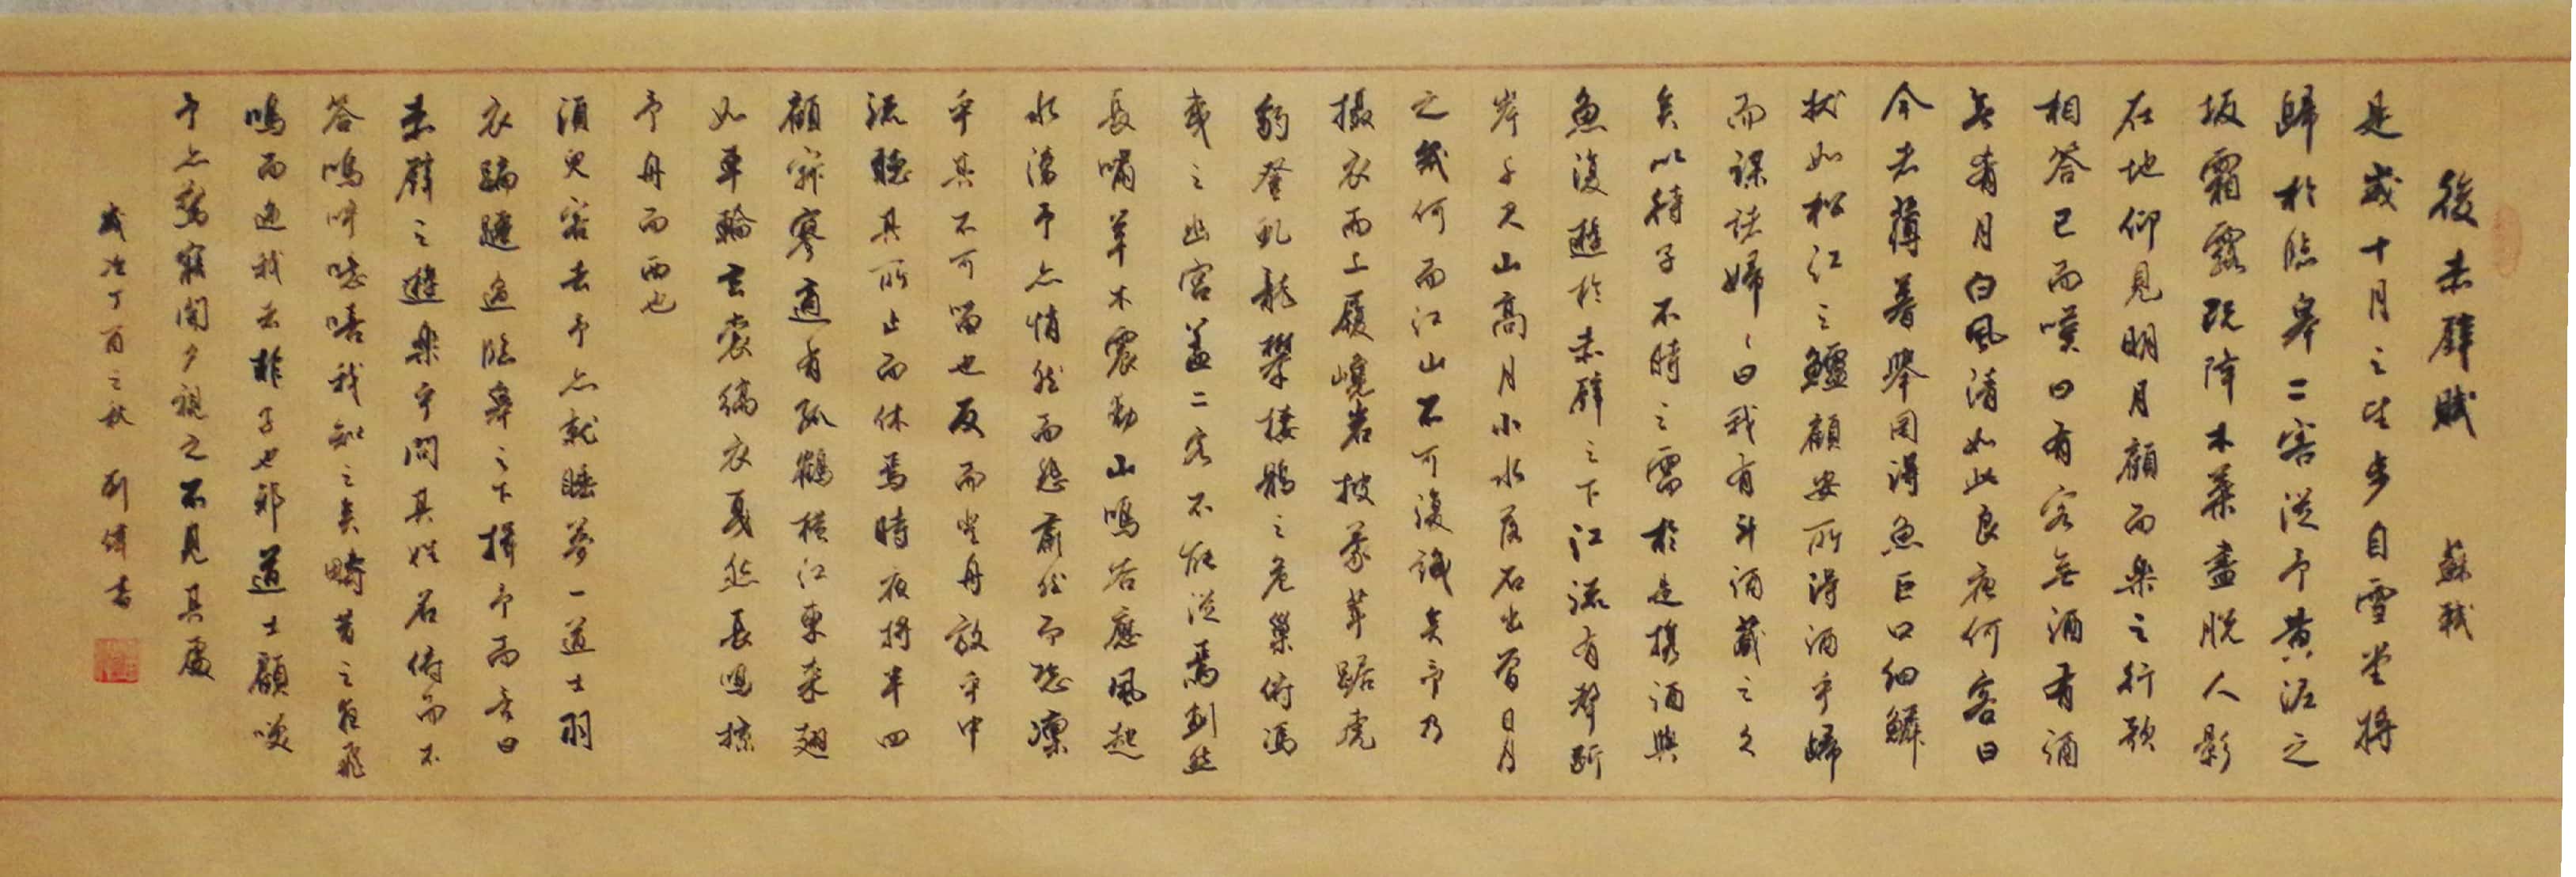 後赤壁賦 蘇軾
是歲十月之望步自雪堂將
歸於臨皋二客從予黃泥之
坂霜露既降木葉盡脫人影
在地仰見明月顧而樂之行歌
相答已而嘆曰有客無酒有酒
無肴月白風清如此良夜何客曰
今者薄暮舉网得魚巨口細鱗
狀如松江之鱸顧安所得酒乎歸
而謀諸婦々曰我有斗酒藏之久
矣以待子不時之需於是攜酒與
魚復遊於赤壁之下江流有聲斷
岸千尺山高月小水落石出曾日月
之幾何而江山不可復識矣予乃
攝衣而上履巉岩披蒙茸踞虎
豹登虬龍攀棲鶻之危巢俯馮
夷之幽宮蓋二客不能從焉劃然
長嘯草木震動山鳴谷應風起
水湧予亦悄然而悲肅然而恐凜
乎其不可留也反而登舟放乎中
流聽其所止而休焉時夜將半四
顧寂寥適有孤鶴橫江東來翅
如車輪玄裳縞衣戛然長鳴掠
予舟而西也
須臾客去予亦就睡夢一道士羽
衣蹁躚過臨皋之下揖予而言曰
赤壁之遊樂乎問其姓名俯而不
答嗚呼噫嘻我知之矣疇昔之夜飛
鳴而過我者非子也邪道士顧笑
予亦驚寤開戶視之不見其處
歲次丁酉之秋 劉偉書